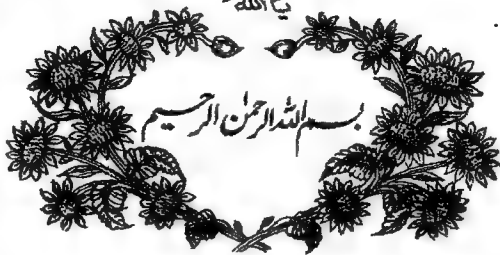 یا اللہ
بسم اللہ الرحمٰن الرحیم